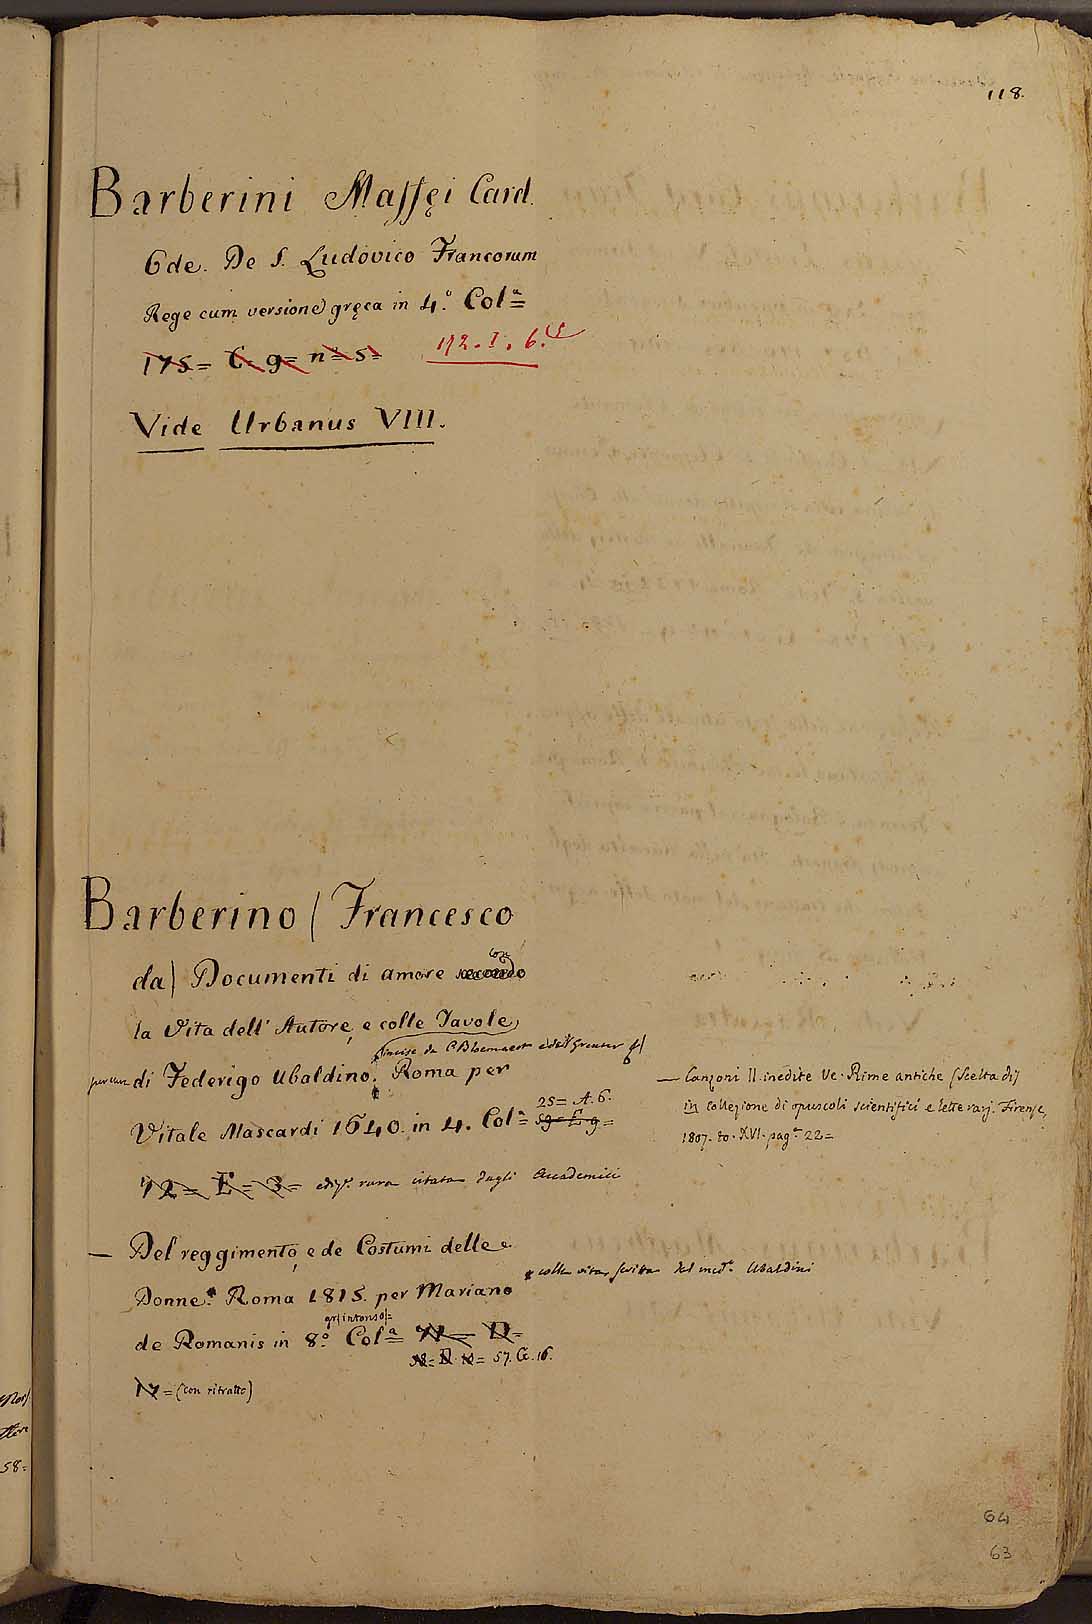 118.
Barberini Maffei Card.
Ode. De S. Ludovico Francorum
Rege cum versione gręca in 4.º Colª=
175= C. g= nº= 5=
172. I. 6.
Vide Urbanus VIII.
Barberino (Francesco
da) Documenti di amore secondo con
la Vita dell' Autore, e colle Tavole
incise da C. Bloemaert e dal Greuter
per cura di Federigo Ubaldino. Roma per
Vitale Mascardi 1640. in 4. Colª= 59= E g= 25= A. 6.
72= E= 3= ediz.e rara citata dagli Accademici
— Del reggimento, e de Costumi delle
Donne. Roma 1815. per Mariano
colla vita scritta dal med.º Ubaldini
de Romanis in 8.º Colª= D=
gr: intonso
57. G. 16.
17= (con ritratto)
— Canzoni II inedite Ve. Rime antiche (Scelta di)
in Collezione di opuscoli scientifici e letterarj. Firenze,
1807. to. XVI. pag.ª 22=
64
63
58=